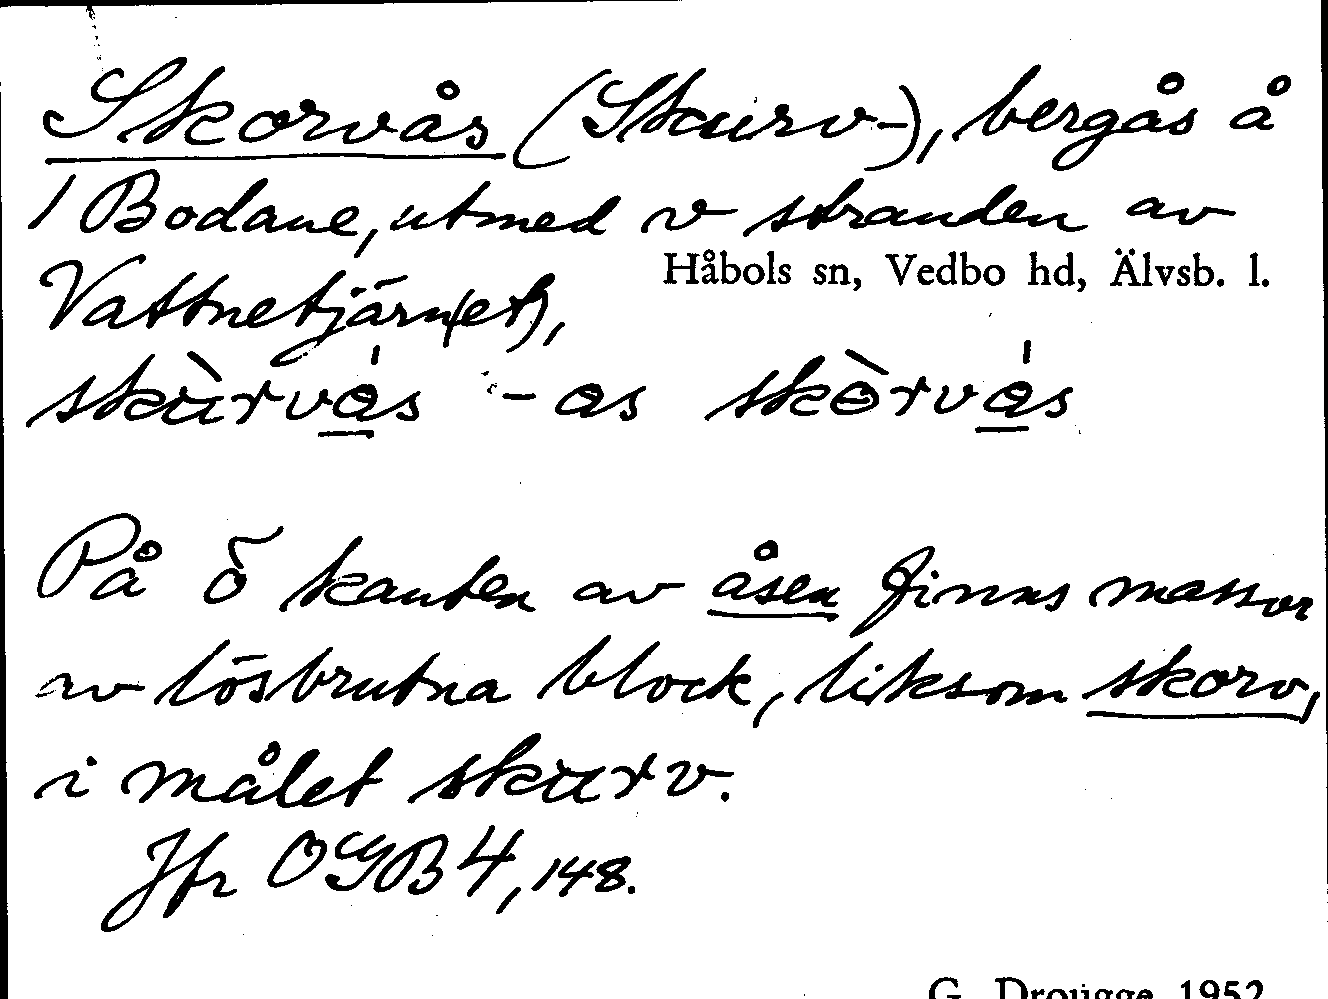 Skorvås (Skurv-), bergås å
1 Bodane, utmed v stranden av
Håbols sn, Vedbo hd, Älvsb. l.
Vattnetjärn(et),
skùrvås - as skòrvås
På ö kanten av åsen finns massor
av lösbrutna block, liksom skorv,
i målet skurv.
Jfr OGB 4, 148.
G. Drougge 1952